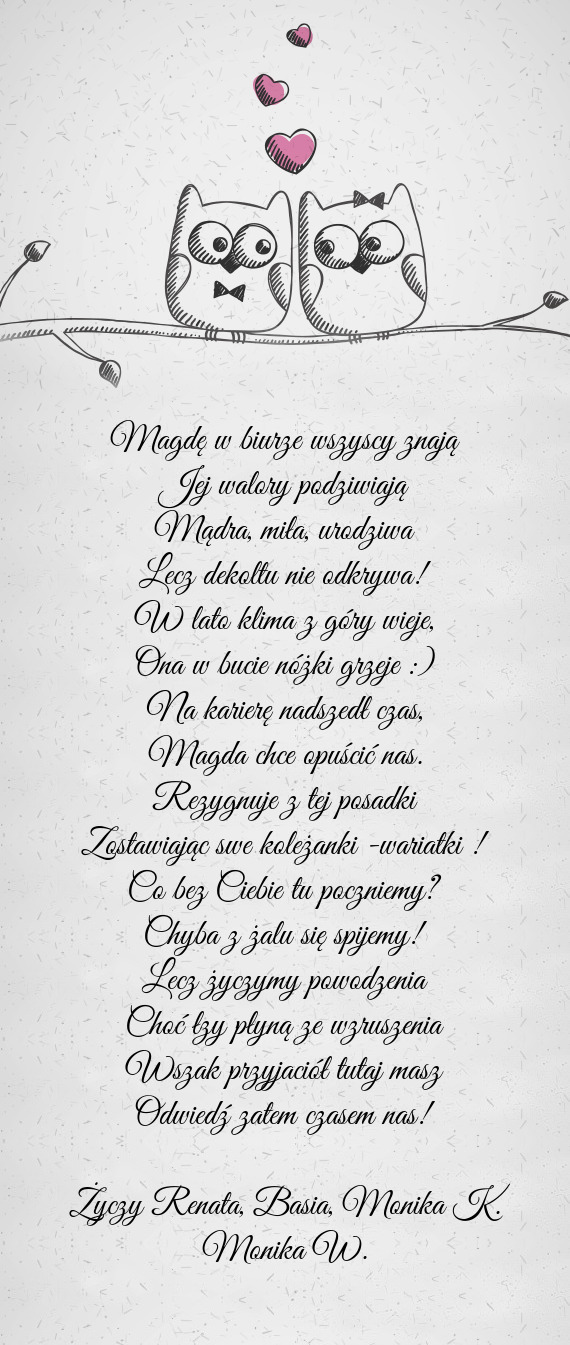 Magdę w biurze wszyscy znają
Jej walory podziwiają
Mądra, miła, urodziwa
Lecz dekoltu nie odkrywa!
W lato klima z góry wieje,
Ona w bucie nóżki grzeje :)
Na karierę nadszedł czas,
Magda chce opuścić nas.
Rezygnuje z tej posadki
Zostawiając swe koleżanki -wariatki !
Co bez Ciebie tu poczniemy?
Chyba z żalu się spijemy!
Lecz życzymy powodzenia
Choć łzy płyną ze wzruszenia
Wszak przyjaciół tutaj masz
Odwiedź zatem czasem nas!
Życzy Renata, Basia, Monika K.
Monika W.